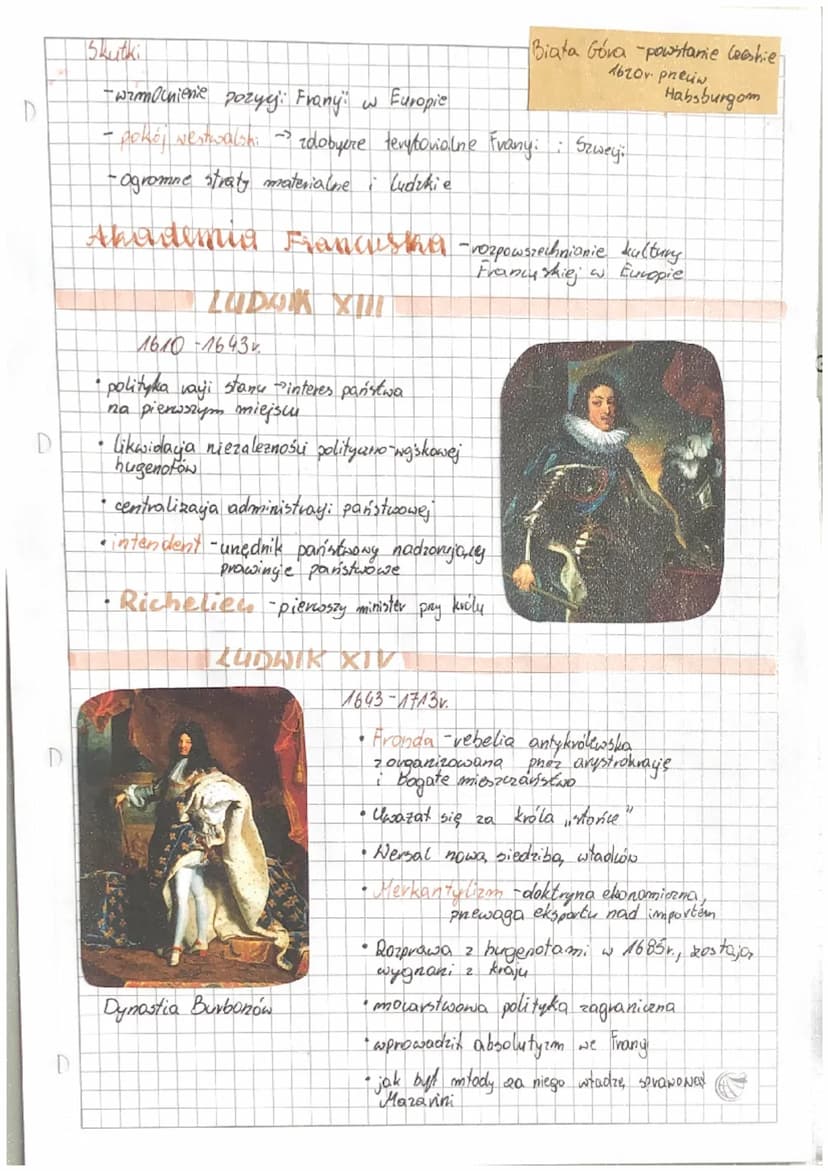 Skutki
Biała Góra - powstanie czeskie
1620r. przeciw
Habsburgom
- wzmocnienie pozycji Francji w Europie
- pokój westwalski → zdobycze terytorialne Francji i Szwecji
- ogromne straty materialne i ludzkie
Akademia Francuska - rozpowszechnianie kultury
Francuskiej w Europie
LUDWIK XIII
1610 - 1643r.
• polityka racji stanu → interes państwa
na pierwszym miejscu
• likwidacja niezależności polityczno-wojskowej
hugenotów
• centralizacja administracji państwowej
• intendent - urzędnik państwowy nadzorujący
prowincje państwowe
• Richelieu - pierwszy minister przy królu
LUDWIK XIV
1643 - 1713r.
• Fronda - rebelia antykrólewska
zorganizowana przez arystokrację
i bogate mieszczaństwo
• Uważał się za króla „słońce"
• Wersal nową siedzibą władców
• Merkantylizm - doktryna ekonomiczna,
przewaga eksportu nad importem
• Rozprawa z hugenotami w 1685r., zostają
wygnani z kraju
Dynastia Burbonów
• mocarstwowa polityka zagraniczna
• wprowadził absolutyzm we Francji
• jak był młody za niego władzę sprawował
Mazarini